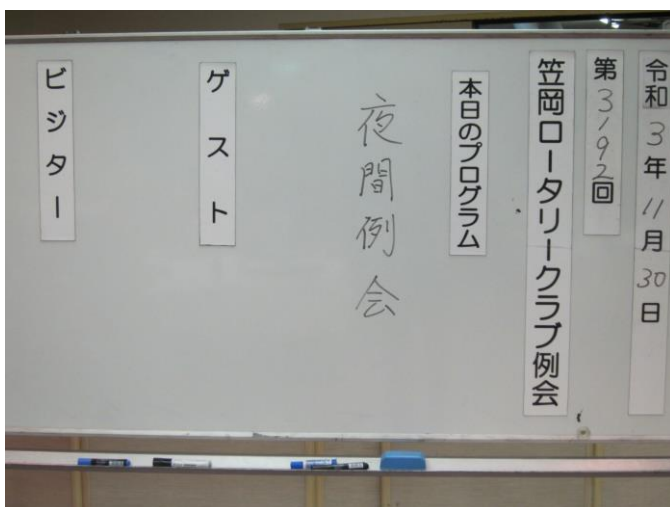 令和3年11月30日
第3192回
笠岡ロータリークラブ例会
本日のプログラム
夜間例会
ゲスト
ビジター